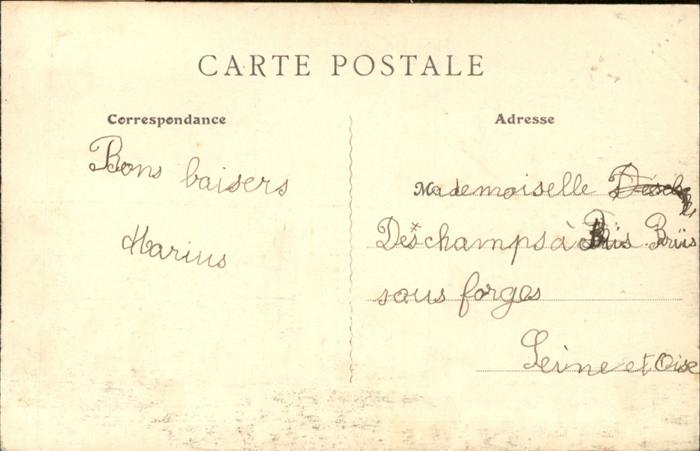 CARTE POSTALE
Correspondance
Adresse
Bons baisers
Marius
Mademoiselle
Deschamps à Briis Briis
sous forges
Seine et Oise